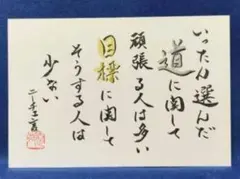 いったん選んだ
道に関して
頑張る人は多い
目標に関して
そうする人は
少ない
ニーチェ言